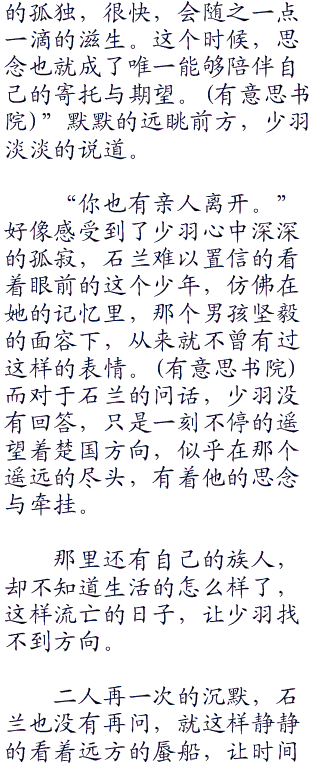 的孤独，很快，会随之一点
一滴的滋生。这个时候，思
念也就成了唯一能够陪伴自
己的寄托与期望。(有意思书
院)”默默的远眺前方，少羽
淡淡的说道。
“你也有亲人离开。”
好像感受到了少羽心中深深
的孤寂，石兰难以置信的看
着眼前的这个少年，仿佛在
她的记忆里，那个男孩坚毅
的面容下，从来就不曾有过
这样的表情。(有意思书院)
而对于石兰的问话，少羽没
有回答，只是一刻不停的遥
望着楚国方向，似乎在那个
遥远的尽头，有着他的思念
与牵挂。
那里还有自己的族人，
却不知道生活的怎么样了，
这样流亡的日子，让少羽找
不到方向。
二人再一次的沉默，石
兰也没有再问，就这样静静
的看着远方的蜃船，让时间